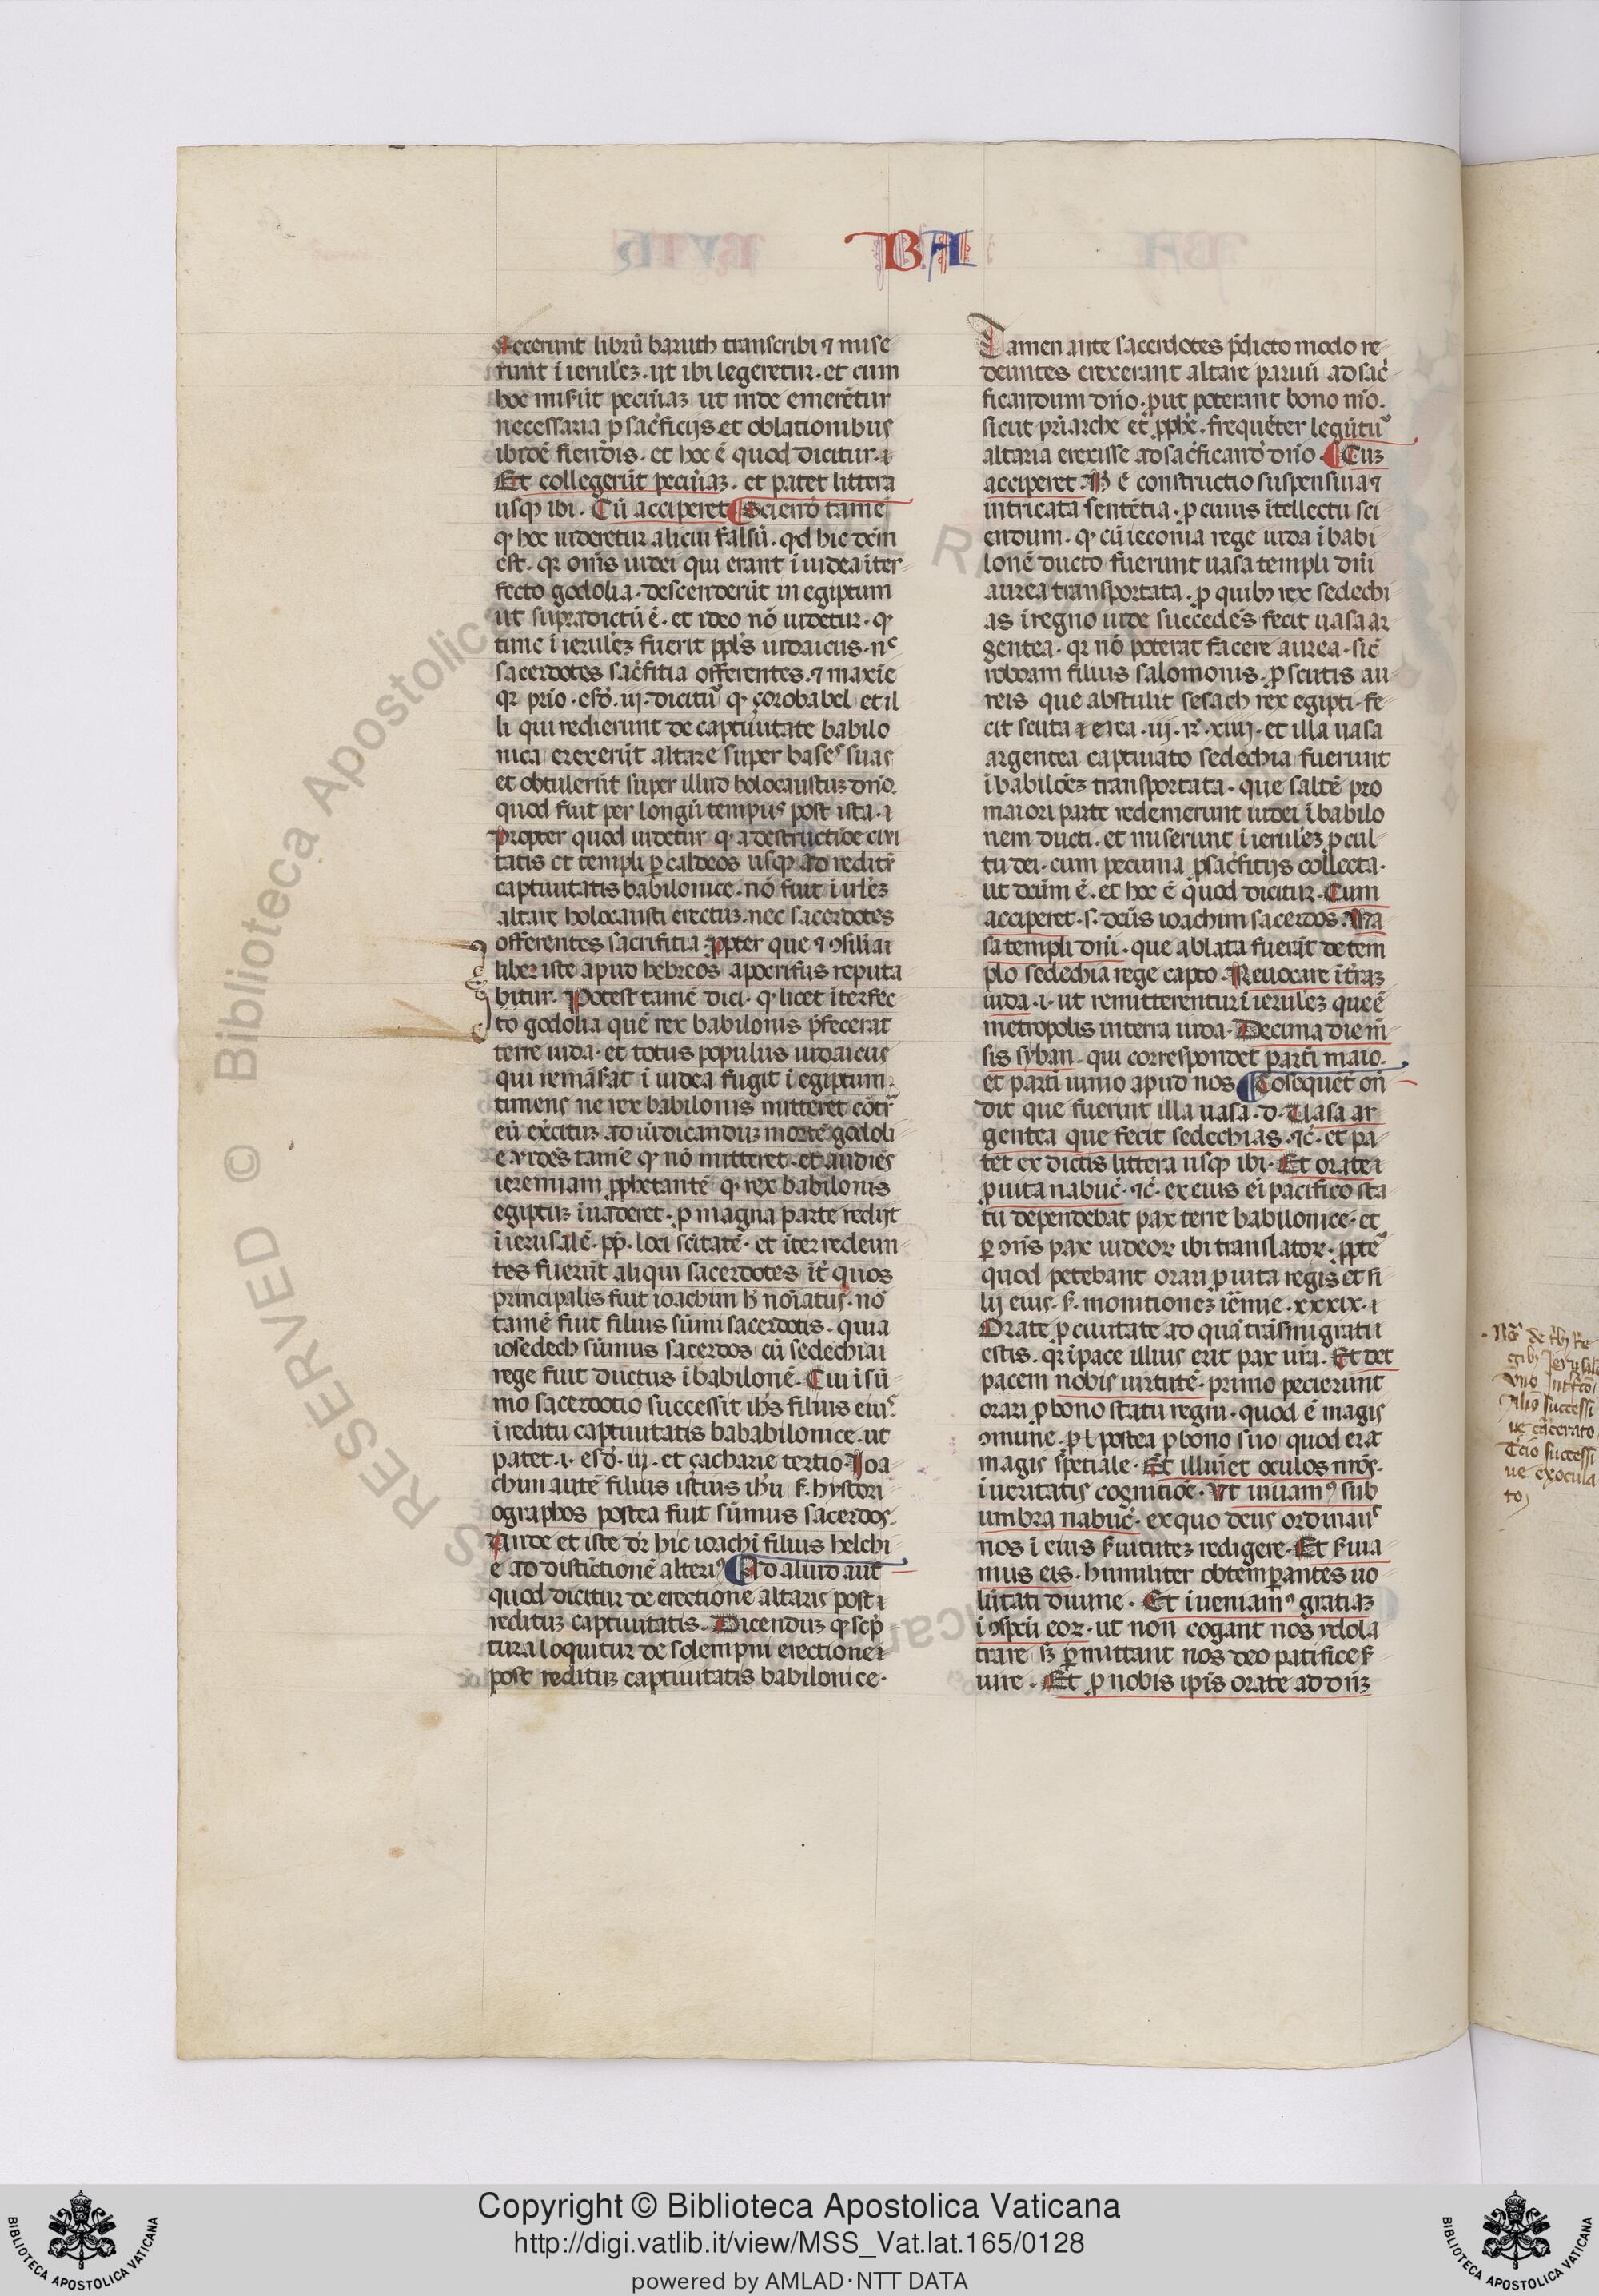 BA
fecerunt librũ baruth transcribi ⁊ mise
runt ĩ ieruleʒ. ut ibi legeretur. et cum
hoc mis̃ũt pecũiaʒ ut inde emerẽtur
necessaria ꝓ sac̃ficijs et oblationibus
ibidẽ fiendis. et hoc ẽ quod dicitur. i
Et collegerũt pecũiaʒ. et patet littera
usqꝫ ibi. Cũ acciperet ¶ Sciend̃ tamẽ
ꝙ hoc uideretur alicui falsũ. qd̃ hic dc̃m
est. qꝛ om̃s iudei qui erant ĩ iudea ĩter
fecto godolia. descenderũt in egiptum
ut supradictũ ẽ. et ideo nõ uidetur. ꝙ
tunc ĩ ierul̃eʒ fuerit ppl̃s iudaicus. nͨ
sacerdotes sac̃fitia offerentes. ⁊ maxĩe
qꝛ prĩo. esd̃. iij. dicitũ ꝙ çorobabel et il
li qui redierunt de captiuitate babilo
nica erexerũt altare super bases suas
et obtulerũt super illud holocaustuʒ dño.
quod fuit per longũ tempus post ista. i
propter quod uidetur ꝙ a destructiõe ciui
tatis et templi ꝑ caldeos usqꝫ ad reditũ
captiuitatis babilonice. nõ fuit ĩ irl̃eʒ
altare holocausti erectuʒ. nec sacerdotes
offerentes sacrifitia. ꝓpter que ⁊ ↄsilia i
liber iste apud hebreos apocrifus reputa
bitur. Potest tamẽ dici. ꝙ licet ĩterfec
to godolia quẽ rex babilonis p̃fecerat
terre iuda. et totus populus iudaicus
qui remãs̃at ĩ iudea fugit ĩ egiptum.
timens ne rex babilonis mitteret cõtͣ
eũ exc̃ituʒ ad iũdicanduʒ mortẽ godoli
e. vidẽs tamẽ ꝙ nõ mitteret. et audiẽs
ieremiam ꝓphetantẽ ꝙ rex babilonis
egiptuʒ ĩuaderet. ꝓ magna parte redijt
ĩ ierusalẽ. pp̃. loci sc̃itatẽ. et ĩter redeun
tes fuerũt aliqui sacerdotes ĩt̃ quos
principalis fuit ioachim h̃ noĩatus. nõ
tamẽ fuit filius sũmi sacerdotis. quia
iosedech sũmus sacerdos cũ sedechia i
rege fuit ductus ĩ babilonẽ. Cui ĩ sũ
mo sacerdotio successit ih̃s filius eiꝰ
ĩ reditu captiuitatis bababilonice. ut
patet. i. esd̃. iij. et çacharie tertio. Ioa
chim autẽ filius istius ih̃u s̃. hystori
ographos postea fuit sũmus sacerdos.
Unde et iste dr̃ hic ioachĩ filius helchi
e ad distĩctionẽ alteriꝰ ¶ Ad aliud aũt
quod dicitur de erectione altaris post i
redituʒ captiuitatis. Dicenduʒ ꝙ sc̃p
tura loquitur de solempni erectione i
post redituʒ captiuitatis babilonice.
Tamen ante sacerdotes p̃dicto modo re
deuntes erexerant altare paruũ ad sac̃
ficandum dño. ꝓut poterant bono mõ.
sicut pr̃iarche et ꝓph̃e. frequẽter legũtũ
altaria erexisse ad sac̃ficand̃ dño. ¶ Cuʒ
acciperet. H̃ ẽ constructio suspensiua ⁊
intricata sentẽtia. ꝓ cuius ĩtellectu sci
endum. ꝙ cũ ieconia rege iuda ĩ babi
lonẽ ducto fuerunt uasa templi dñi
aurea transportata. ꝓ quibꝫ rex sedechi
as ĩ regno iude succedẽs fecit uasa ar
gentea. qꝛ nõ poterat facere aurea. sic̃
roboam filius salomonis. ꝓ scutis au
reis que abstulit sesach rex egipti. fe
cit scuta erea. iij. r̃. xiiij. et illa uasa
argentea captiuato sedechia fuerunt
ĩ babilõeʒ transportata. que saltẽ pro
maiori parte redemerunt iudei ĩ babilo
nem ducti. et miserunt ĩ ierul̃eʒ ꝓ cul
tu dei. cum pecunia ꝓ sac̃fitijs collecta.
ut dc̃um ẽ. et hoc ẽ quod dicitur. Cum
acciperet. s. dc̃us ioachim sacerdos. Ua
sa templi dñi. que ablata fuerãt de tem
plo sedechia rege capto. Reuocare ĩ t̃raʒ
iuda. i. ut remitterentur ĩ ierul̃eʒ que ẽ
metropolis in terra iuda. Decima die m̃
sis syban. qui correspondet parti maio.
et parti iunio apud nos ¶ Cõseq̃uet on̄
dit que fuerint illa uasa. d. Uasa ar
gentea que fecit sedechias. ⁊c̃. et pa
tet ex dictis littera usqꝫ ibi. Et orate i
ꝓ uita nabuc̃. ⁊c̃. ex eius eĩ pacifico sta
tu dependebat pax terre babilonice. et
ꝑ ↄñs pax iudeoꝝ ibi translatoꝝ. ꝓpt̃
quod petebant orari ꝓ uita regis et fi
lij eius. s̃. monitioneʒ ieř̃mie. xxxix. i
Orate ꝓ ciuitate ad quã trãsmigratii
estis. qꝛ ĩ pace illius erit pax ur̃a. Et det
pacem nobis uirtutẽ. primo pecierunt
orari ꝓ bono statu regni. quod ẽ magis
ↄmune. ꝓ l̃ postea ꝓ bono suo quod erat
magis sp̃etiale. Et illuĩet oculos nr̃os.
ĩ ueritatis cognitiõe. Ut uiuamꝰ sub
umbra nabuc̃. ex quo deus ordinauͭ
nos ĩ eius s̃uituteʒ redigere. Et s̃uia
mus eis. humiliter obtemꝑantes uo
lũtati diuine. Et ĩueniamꝰ gratiaʒ
ĩ ↄspc̃ũ eoꝝ. ut non cogant nos ydola
trare sʒ ꝑmittant nos deo pacifice s̃
uire. Et ꝓ nobis ip̃is orate ad dñʒ
Copyright © Biblioteca Apostolica Vaticana
http://digi.vatlib.it/view/MSS_Vat.lat.165/0128
powered by AMLAD·NTT DATA
BIBLIOTECA APOSTOLICA VATICANA
BIBLIOTECA APOSTOLICA VATICANA